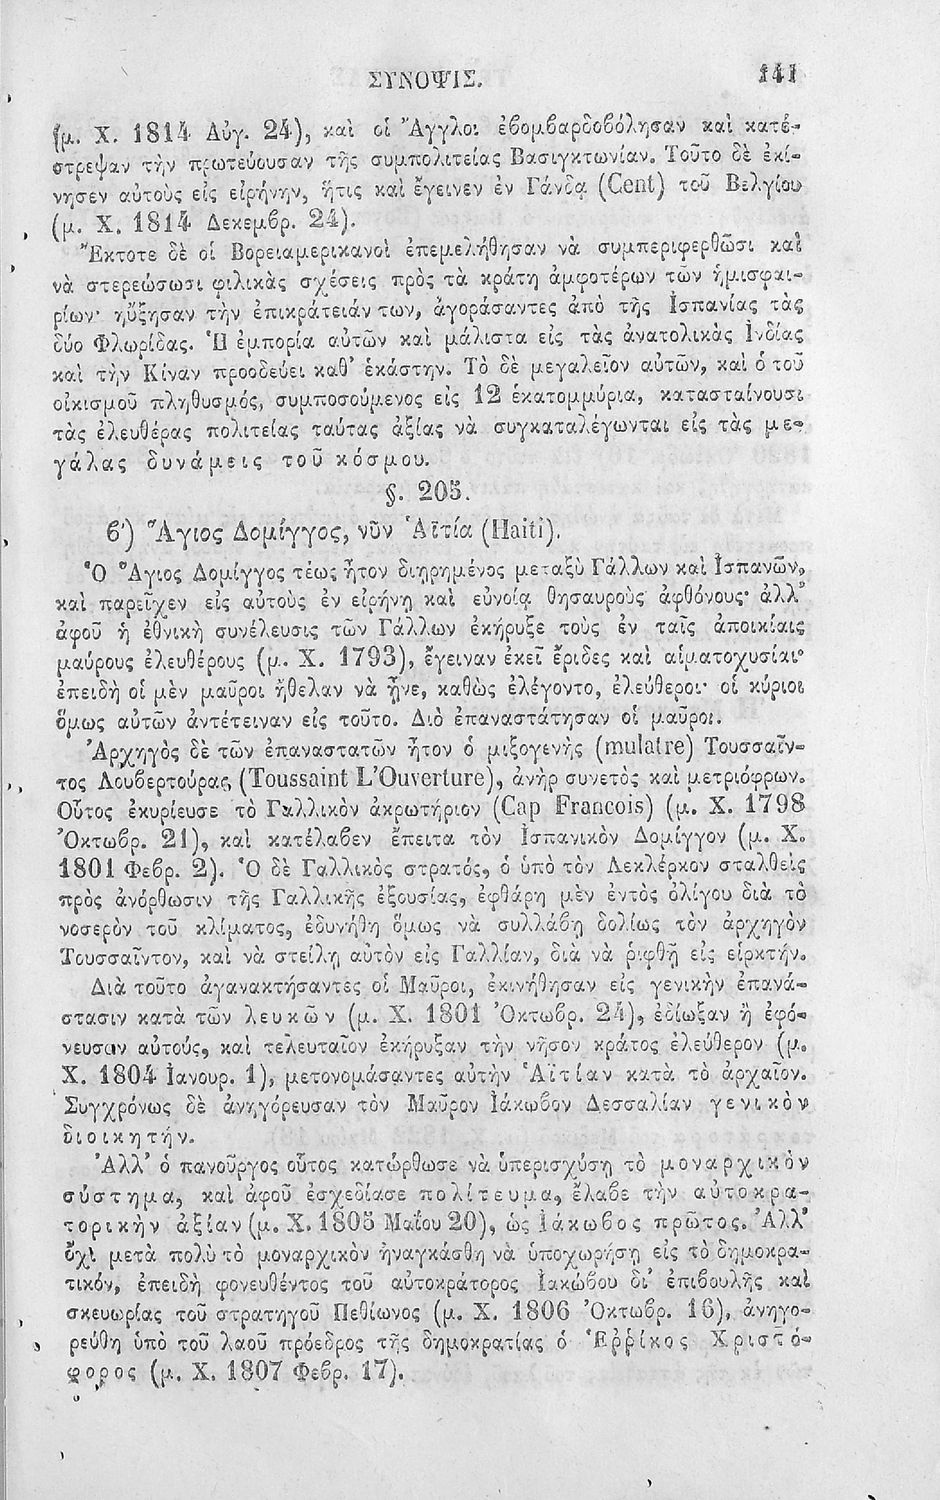 ΣΥΝΟΨΙΣ. 141
(μ. Χ. 1814 Αὐγ. 24), καὶ οἱ Ἄγγλοι ἐβομβαρδοβόλησαν καὶ κατέ-
στρεψαν τὴν πρωτεύουσαν τῆς συμπολιτείας Βασιγκτωνίαν. Τοῦτο δὲ ἐκί-
νησεν αὐτοὺς εἰς εἰρήνην, ἥτις καὶ ἔγεινεν ἐν Γάνδᾳ (Cent) τοῦ Βελγίου
(μ. Χ. 1814 Δεκεμβρ. 24).
Ἔκτοτε δὲ οἱ Βορειαμερικανοὶ ἐπεμελήθησαν νὰ συμπεριφερθῶσι καὶ
νὰ στερεώσωσι φιλικὰς σχέσεις πρὸς τὰ κράτη ἀμφοτέρων τῶν ἡμισφαι-
ρίων· ηὔξησαν τὴν ἐπικράτειάν των, ἀγοράσαντες ἀπὸ τῆς Ἱσπανίας τὰς
δύο Φλωρίδας. Ἡ ἐμπορία αὐτῶν καὶ μάλιστα εἰς τὰς ἀνατολικὰς Ἰνδίας
καὶ τὴν Κίναν προοδεύει καθ' ἑκάστην. Τὸ δὲ μεγαλεῖον αὐτῶν, καὶ ὁ τοῦ
οἰκισμοῦ πληθυσμός, συμποσούμενος εἰς 12 ἑκατομμύρια, κατασταίνουσι
τὰς ἐλευθέρας πολιτείας ταύτας ἀξίας νὰ συγκαταλέγωνται εἰς τὰς με-
γάλας δυνάμεις τοῦ κόσμου.
§. 205.
β') Ἅγιος Δομίγγος, νῦν Ἁϊτία (Haiti).
Ὁ Ἅγιος Δομίγγος τέως ἦτον διῃρημένος μεταξὺ Γάλλων καὶ Ἱσπανῶν,
καὶ παρεῖχεν εἰς αὐτοὺς ἐν εἰρήνῃ καὶ εὐνοίᾳ θησαυροὺς ἀφθόνους· ἀλλ'
ἀφοῦ ἡ ἐθνικὴ συνέλευσις τῶν Γάλλων ἐκήρυξε τοὺς ἐν ταῖς ἀποικίαις
μαύρους ἐλευθέρους (μ. Χ. 1793), ἔγειναν ἐκεῖ ἔριδες καὶ αἱματοχυσίαι·
ἐπειδὴ οἱ μὲν μαῦροι ἤθελαν νὰ ἦνε, καθὼς ἐλέγοντο, ἐλεύθεροι· οἱ κύριοι
ὅμως αὐτῶν ἀντέτειναν εἰς τοῦτο. Διὸ ἐπαναστάτησαν οἱ μαῦροι.
Ἀρχηγὸς δὲ τῶν ἐπαναστατῶν ἦτον ὁ μιξογενὴς (mulatre) Τουσσαῖν-
τος Λουβερτούρας (Toussaint L'Ouverture), ἀνὴρ συνετὸς καὶ μετριόφρων.
Οὗτος ἐκυρίευσε τὸ Γαλλικὸν ἀκρωτήριον (Cap Francois) (μ. Χ. 1798
Ὀκτωβρ. 21), καὶ κατέλαβεν ἔπειτα τὸν Ἱσπανικὸν Δομίγγον (μ. Χ.
1801 Φεβρ. 2). Ὁ δὲ Γαλλικὸς στρατός, ὁ ὑπὸ τὸν Λεκλέρκον σταλθεὶς
πρὸς ἀνόρθωσιν τῆς Γαλλικῆς ἐξουσίας, ἐφθάρη μὲν ἐντὸς ὀλίγου διὰ τὸ
νοσερὸν τοῦ κλίματος, ἐδυνήθη ὅμως νὰ συλλάβῃ δολίως τὸν ἀρχηγὸν
Τουσσαῖντον, καὶ νὰ στείλῃ αὐτὸν εἰς Γαλλίαν, διὰ νὰ ῥιφθῇ εἰς εἱρκτήν.
Διὰ τοῦτο ἀγανακτήσαντες οἱ Μαῦροι, ἐκινήθησαν εἰς γενικὴν ἐπανά-
στασιν κατὰ τῶν λευκῶν (μ. Χ. 1801 Ὀκτωβρ. 24), ἐδίωξαν ἢ ἐφό-
νευσαν αὐτούς, καὶ τελευταῖον ἐκήρυξαν τὴν νῆσον κράτος ἐλεύθερον (μ.
Χ. 1804 Ἰανουρ. 1), μετονομάσαντες αὐτὴν Ἁϊτίαν κατὰ τὸ ἀρχαῖον.
Συγχρόνως δὲ ἀνηγόρευσαν τὸν Μαῦρον Ἰάκωβον Δεσσαλίαν γενικὸν
διοικητήν.
Ἀλλ' ὁ πανοῦργος οὗτος κατώρθωσε νὰ ὑπερισχύσῃ τὸ μοναρχικὸν
σύστημα, καὶ ἀφοῦ ἐσχεδίασε πολίτευμα, ἔλαβε τὴν αὐτοκρα-
τορικὴν ἀξίαν (μ. Χ. 1805 Μαΐου 20), ὡς Ἰάκωβος πρῶτος. Ἀλλ'
ὄχι μετὰ πολὺ τὸ μοναρχικὸν ἠναγκάσθη νὰ ὑποχωρήσῃ εἰς τὸ δημοκρα-
τικόν, ἐπειδὴ φονευθέντος τοῦ αὐτοκράτορος Ἰακώβου δι' ἐπιβουλῆς καὶ
σκευωρίας τοῦ στρατηγοῦ Πεθίωνος (μ. Χ. 1806 Ὀκτωβρ. 16), ἀνηγο-
ρεύθη ὑπὸ τοῦ λαοῦ πρόεδρος τῆς δημοκρατίας ὁ Ἑῤῥῖκος Χριστό-
φορος (μ. Χ. 1807 Φεβρ. 17).